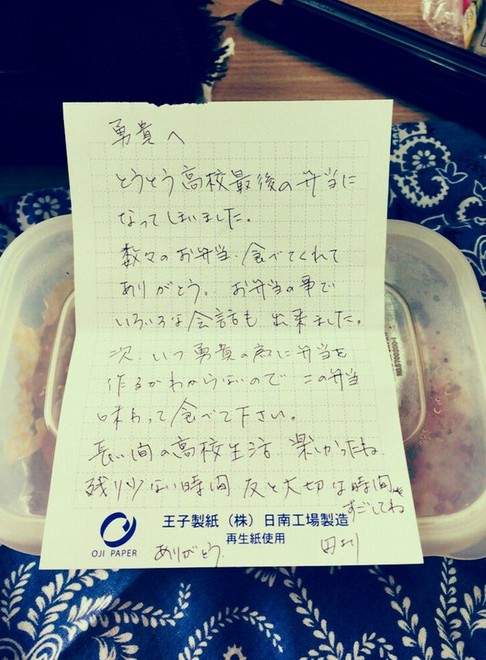 勇貴へ
とうとう高校最後の弁当に
なってしまいました。
数々のお弁当、食べてくれて
ありがとう。お弁当の事で
いろいろな会話も出来ました。
次、いつ勇貴の為に弁当を
作るかわからないので この弁当
味わって食べて下さい。
長い間の高校生活 楽しかったね
残り少ない時間 友と大切な時間を
すごしてね
王子製紙(株)日南工場製造
再生紙使用
OJI PAPER
ありがとう